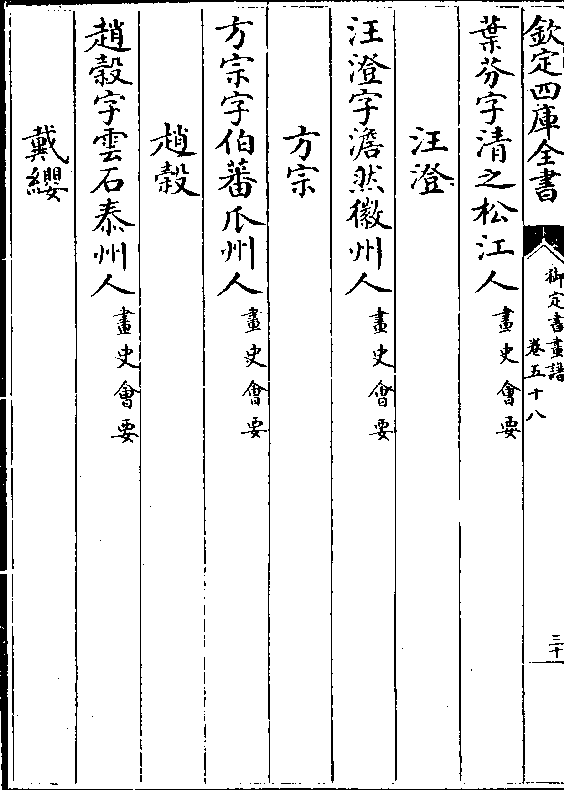 欽定四庫全書
御定書畫譜
卷五十八
三十
葉芬字清之松江人畫史會要
汪澄
汪澄字澹然徽州人畫史會要
方宗
方宗字伯蕃爪州人畫史會要
趙穀
趙穀字雲石泰州人畫史會要
戴纓